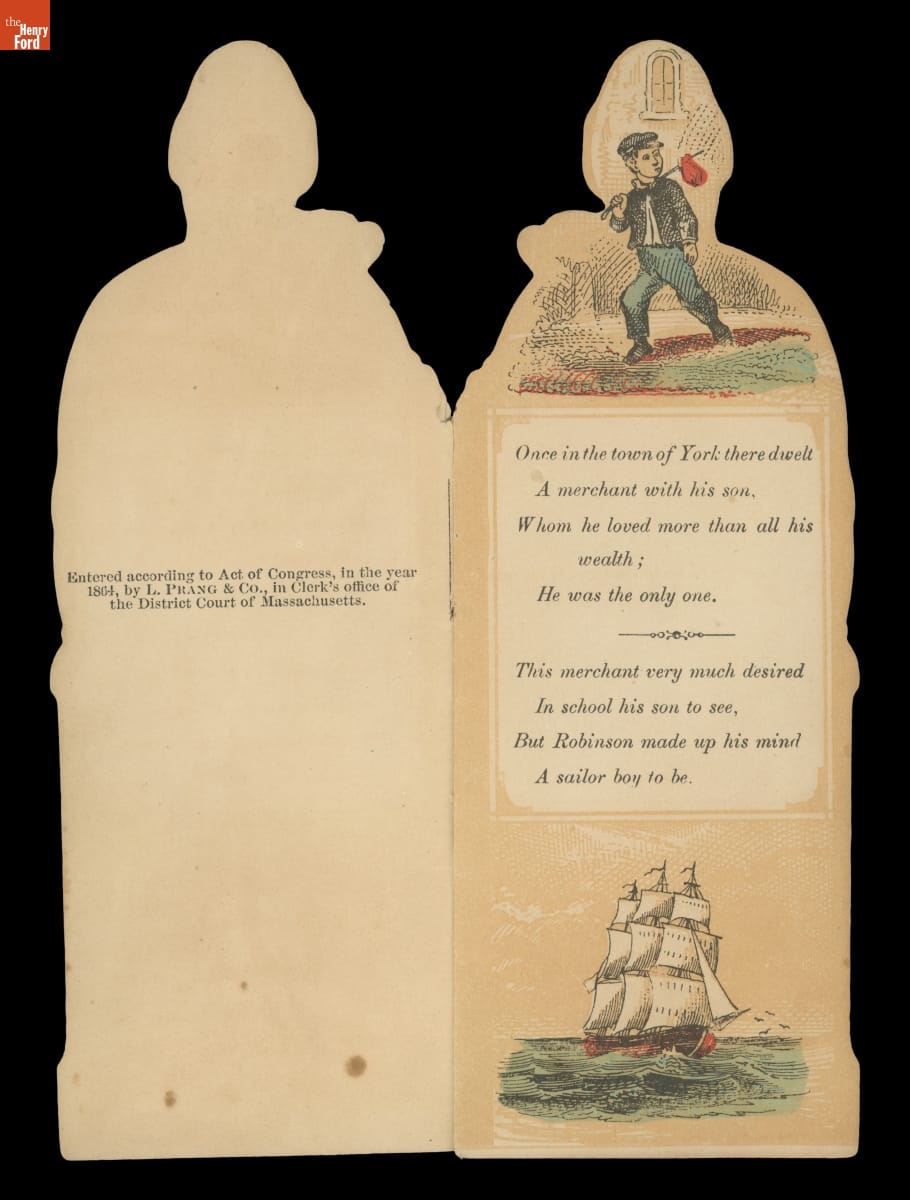 the
Henry
Ford
Entered according to Act of Congress, in the year
1864, by L. PRANG & CO., in Clerk's office of
the District Court of Massachusetts.
Once in the town of York there dwelt
A merchant with his son,
Whom he loved more than all his
wealth;
He was the only one.
This merchant very much desired
In school his son to see,
But Robinson made up his mind
A sailor boy to be.